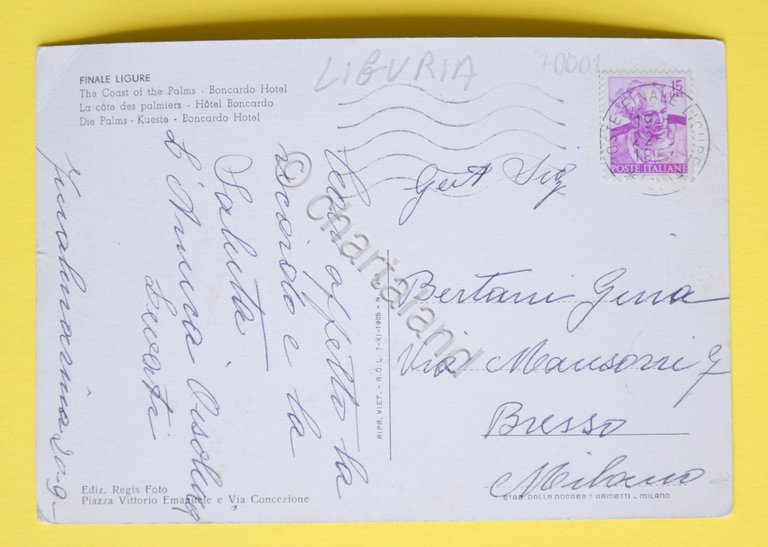 FINALE LIGURE
The Coast of the Palms - Boncardo Hotel
La côte des palmiers - Hôtel Boncardo
Die Palms - Kueste - Boncardo Hotel
LIGURIA
70001
15
LIRE
POSTE ITALIANE
FINALE LIGURE
Con affetto la
ricordo e la
Saluta
L'Amica Orsolina
Levati
Finalmarina 20-9-
Gent Sig
Bertani Gina
Via Mansoni 7
Bresso
Milano
RIPR. VIET. - R.D.L. 7-XI-1925 - N.
Ediz. Regis Foto
Piazza Vittorio Emanuele e Via Concezione
STAB. DALLE NOGARE & ARMETTI - MILANO
© chartaland